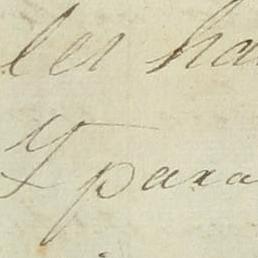 les ha
Y para